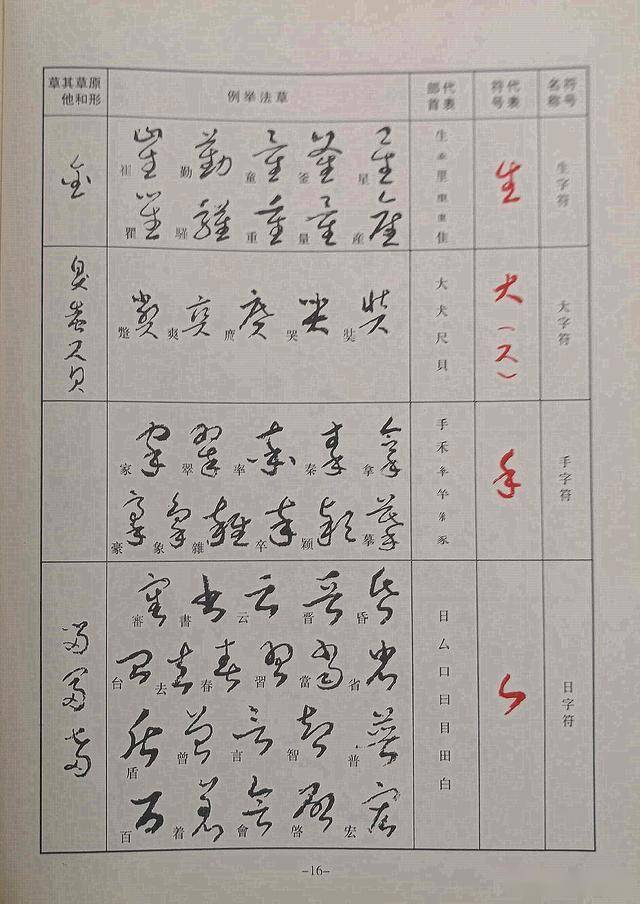 符号名称
代表符号
代表部首
草法举例
原形草和其他草
生字符
生
生 里 隹
星 釜 童 勤 崔
産 量 重 瞿
大字符
大（ス）
大 犬 尺 貝
奘 哭 爽
手字符
手
手 禾 豕
拿 秦 率 翠 家
摹 颖 卒 雜 象 豪
日字符
日 厶 口 曰 目 田 白
昏 晋 云 書 審
省 當 習 春 去 台
普 智 言 曾 盾
宏 啓 會 着 百
-16-